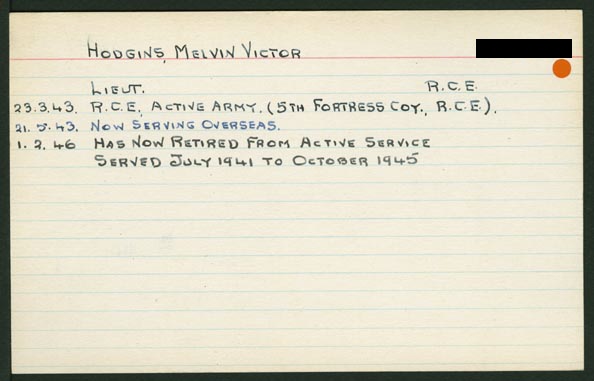 HODGINS, MELVIN VICTOR
LIEUT. R.C.E.
23.3.43. R.C.E. ACTIVE ARMY. (5TH FORTRESS COY., R.C.E.).
21.5.43. NOW SERVING OVERSEAS.
1.2.46 HAS NOW RETIRED FROM ACTIVE SERVICE
SERVED JULY 1941 TO OCTOBER 1945